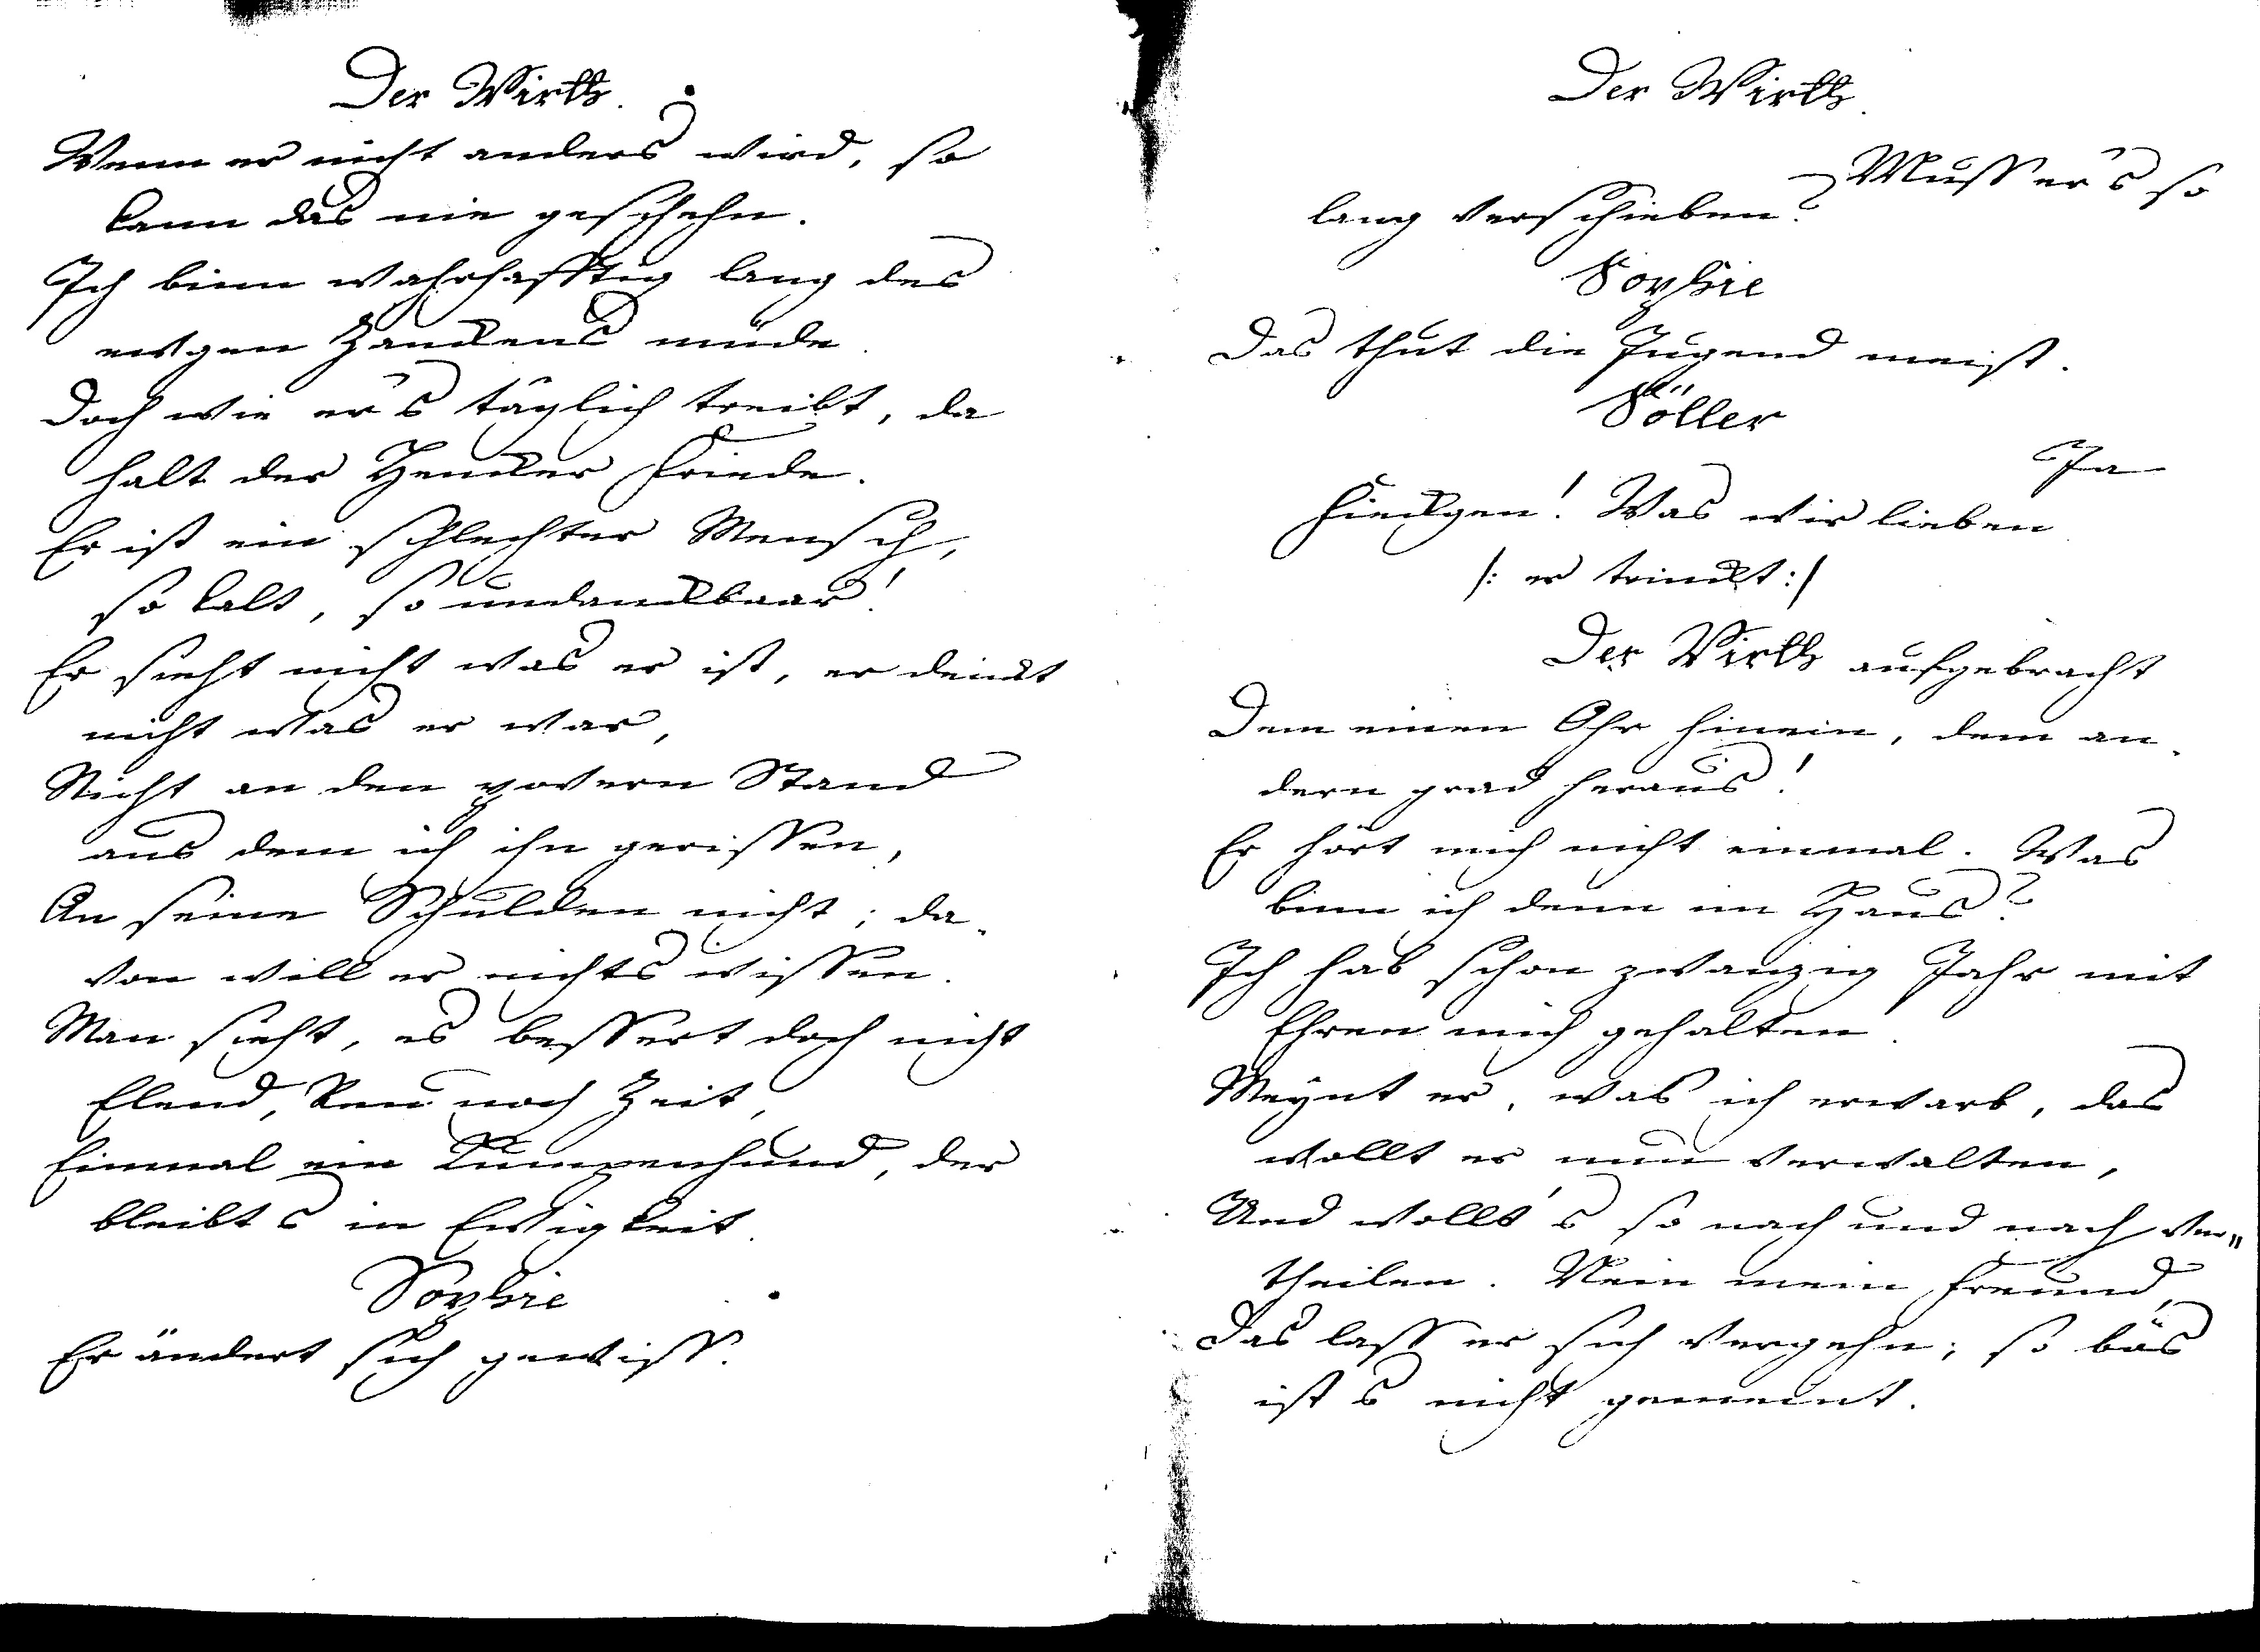 Der Wirth.
Wenn er nicht anders wird, so
kann das nie geschehn.
Ich binn wahrhafftig lang des
ewgen Zanckens müde.
Doch wie er's täglich treibt, da
halt der Hencker Friede.
Er ist ein schlechter Mensch,
so kalt, so undanckbaar!
Er sieht nicht was er ist, er denckt
nicht was er war,
Nicht an den povern Stand
aus dem ich ihn gerissen,
An seine Schulden nicht; da-
von will er nichts wissen.
Man sieht, es bessert doch nicht
Elend, Reu noch Zeit,
Einmal ein Lumpenhund, der
bleibts in Ewigkeit.
Sophie
Er ändert sich gewiss.
Der Wirth.
Muss er's so
lang verschieben?
Sophie
Das thut die Jugend meist.
Söller
Ja
Fieckgen! Was wir lieben
/: er trinckt :/
Der Wirth aufgebracht
Dem einen Ohr hinein, dem an-
dern grad heraus!
Er hört mich nicht einmal. Was
binn ich denn im Haus?
Ich hab schon zwanzig Jahr mit
Ehren mich gehalten.
Meynt er, was ich erwarb, das
wollt er nun verwalten,
Und wollt's so nach und nach ver"
theilen. Nein mein Freund,
Das lass er sich vergehn; so bös
ist s nicht gemeint.